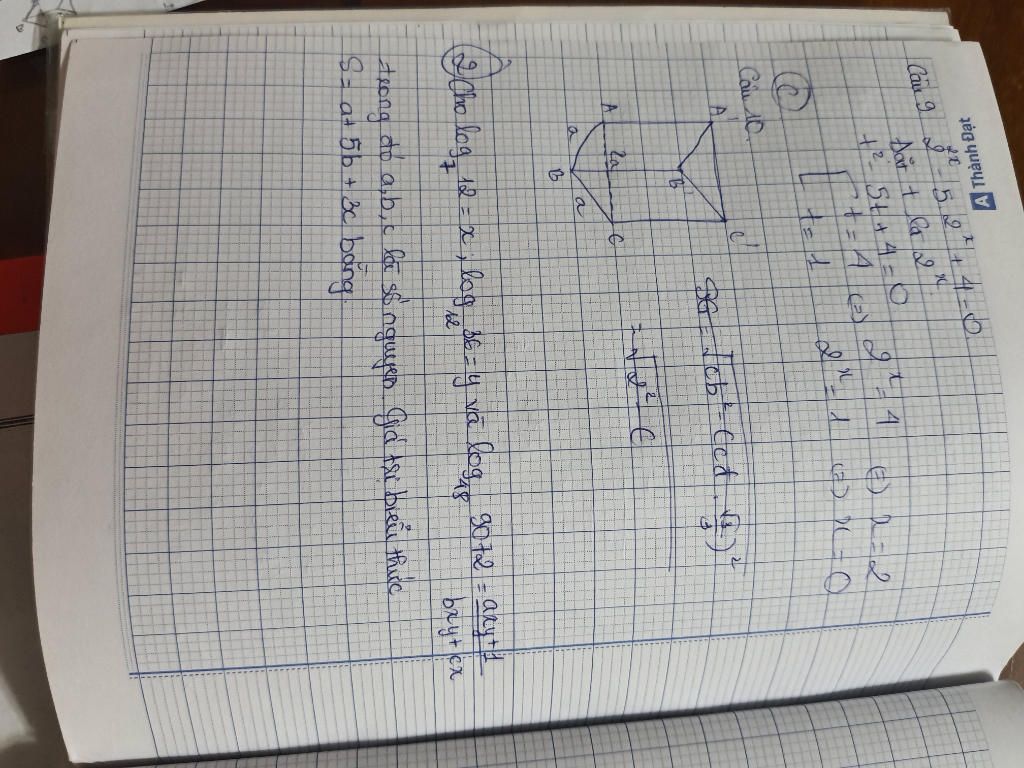 Thành Đạt
Câu 9 2^2x - 5 2^x + 4 = 0
Đặt t là 2^x
t² - 5t + 4 = 0
t = 4 (=) 2^x = 4 (=) x = 2
t = 1 2^x = 1 (=) x = 0
C
Câu 10
A' B' C'
A 2a C
a a
B
= √2² - C
2) Cho log₇ 12 = x; log₁₂ = y và log = axy + 1 / bxy + cx
trong đó a, b, c là số nguyên. Giá trị biểu thức
S = a + 5b + 3c bằng.